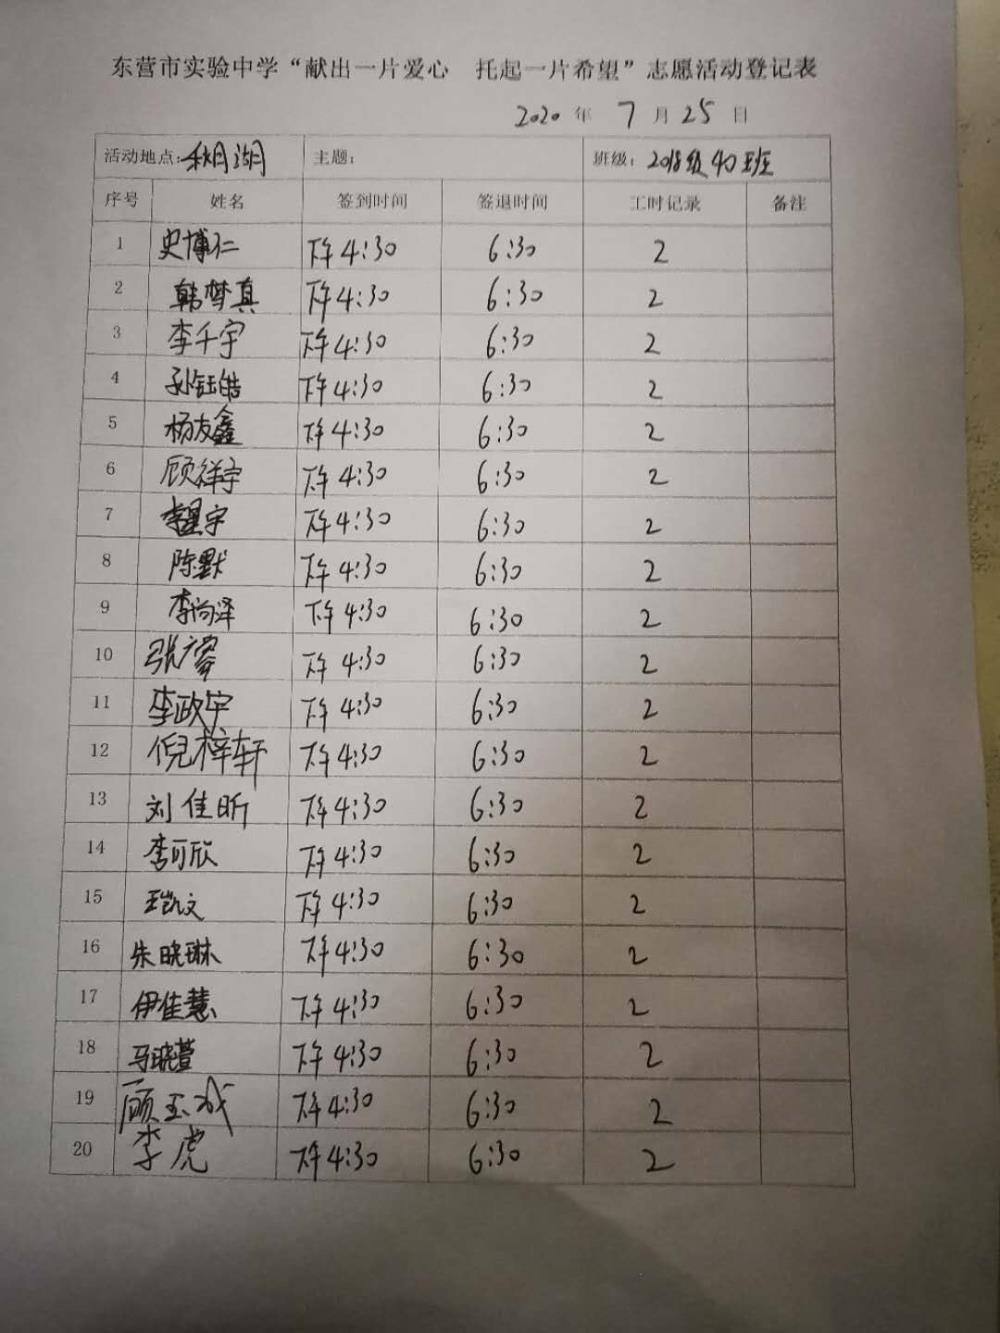 东营市实验中学“献出一片爱心 托起一片希望”志愿活动登记表
2020 年 7 月 25 日
活动地点:秋月湖 主题: 班级: 2018级40班
序号 姓名 签到时间 签退时间 工时记录 备注
1 史博仁 下午4:30 6:30 2
2 韩梦真 下午4:30 6:30 2
3 李千宇 下午4:30 6:30 2
4 孙钰皓 下午4:30 6:30 2
5 杨友鑫 下午4:30 6:30 2
6 顾祥宇 下午4:30 6:30 2
7 李星宇 下午4:30 6:30 2
8 陈默 下午4:30 6:30 2
9 李尚泽 下午4:30 6:30 2
10 张 下午4:30 6:30 2
11 李政宇 下午4:30 6:30 2
12 倪梓轩 下午4:30 6:30 2
13 刘佳昕 下午4:30 6:30 2
14 李可欣 下午4:30 6:30 2
15 王凯文 下午4:30 6:30 2
16 朱晓琳 下午4:30 6:30 2
17 伊佳慧 下午4:30 6:30 2
18 马晓萱 下午4:30 6:30 2
19 顾玉成 下午4:30 6:30 2
20 李虎 下午4:30 6:30 2